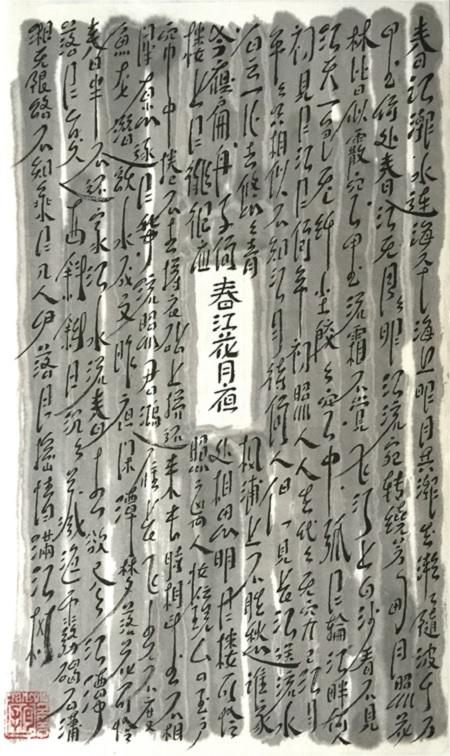 春江花月夜
春江潮水連海平海上明月共潮生灩灩隨波千万
里何處春江无月明江流宛轉繞芳甸月照花
林皆似霰空里流霜不覺飛汀上白沙看不見
江天一色无纤尘皎皎空中孤月輪江畔何人
初見月江月何年初照人人生代代无窮已江月
年年只相似不知江月待何人但見长江送流水
白云一片去悠悠青楓浦上不勝愁誰家
今夜扁舟子何處相思明月樓可憐
樓上月徘徊應照離人妝鏡台玉户
帘中捲不去擣衣砧上拂还来此時相望不相
聞愿逐月華流照君鴻雁长飞光不度
魚龙潛躍水成文昨夜闲潭夢落花可憐
春半不还家江水流春去欲尽江潭
落月复西斜斜月沉沉藏海雾碣石瀟
湘无限路不知乘月几人归落月搖情滿江樹